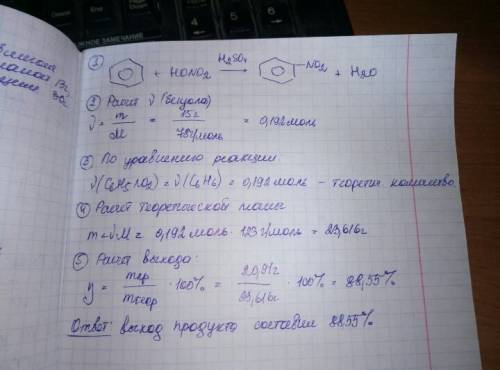 ЖНОЕ ЗАМЕЧАНИЕ
① + HONO₂ H₂SO₄ → –NO₂ + H₂O
② Расчет ν (бензола)
ν = m/M = 15г/78г/моль = 0,192 моль
③ По уравнению реакции:
ν(C₆H₅NO₂) = ν(C₆H₆) = 0,192 моль – теоретич. количество
④ Расчет теоретической массы
m = ν·M = 0,192 моль · 123 г/моль = 23,616г
⑤ Расчет выхода:
η = mпр/mтеор · 100% = 20,91г/23,616г · 100% = 88,55%
Ответ: выход продукта составил 88,55%